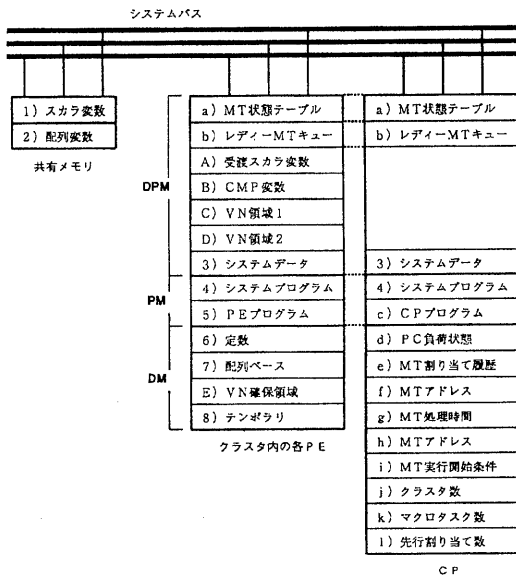 システムバス
1) スカラ変数
2) 配列変数
共有メモリ
DPM
PM
DM
a) MT状態テーブル
b) レディーMTキュー
A) 受渡スカラ変数
B) CMP変数
C) VN領域1
D) VN領域2
3) システムデータ
4) システムプログラム
5) PEプログラム
6) 定数
7) 配列ベース
E) VN確保領域
8) テンポラリ
クラスタ内の各PE
a) MT状態テーブル
b) レディーMTキュー
3) システムデータ
4) システムプログラム
c) CPプログラム
d) PC負荷状態
e) MT割り当て履歴
f) MTアドレス
g) MT処理時間
h) MTアドレス
i) MT実行開始条件
j) クラスタ数
k) マクロタスク数
l) 先行割り当て数
CP